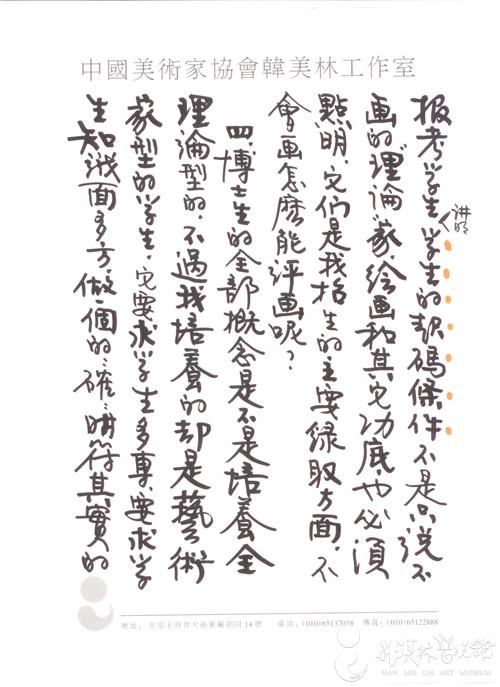 中國美術家協會韓美林工作室
报考学生学生的起码條件不是只说不
讲明
画的理論家,绘画和其它功底也必須
點明,它们是我招生的主要緑取方面,不
會画怎麽能评画呢?
四.博士生的全部概念是不是培養全
理論型的,不過我培養的却是藝術
家型的学生,它要求学生多專,要求学
生知识面多方,做一個的:確:符其實的
地址: 北京王府井大街東廠胡同14號 電話:(010)65137038 傳真:(010)65122888
韩美林艺术馆
HAN MEI LIN ART MUSEUM